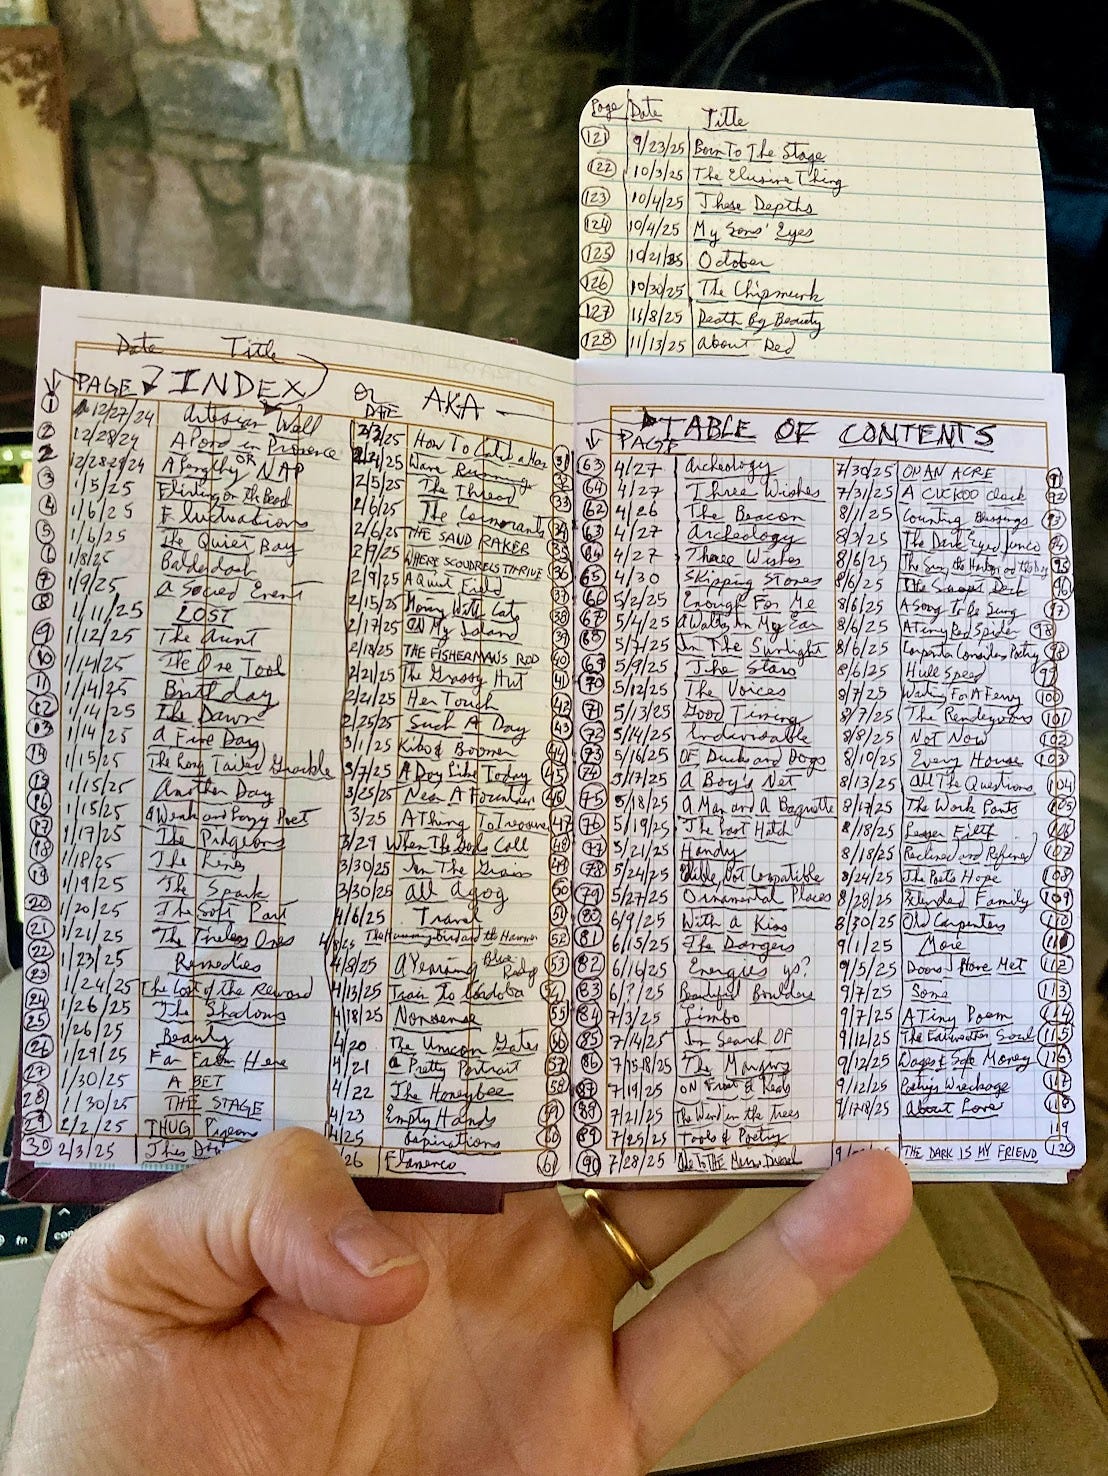 Page Date Title
121 9/23/25 Born To The Stage
122 10/3/25 The Elusive Thing
123 10/4/25 These Depths
124 10/4/25 My Sons' Eyes
125 10/21/25 October
126 10/30/25 The Chipmunk
127 11/8/25 Death By Beauty
128 11/13/25 About Red
Date Title
PAGE INDEX or AKA
DATE
1 12/27/24 Artesian Well
2 12/28/24 A Pond in Provence
OR
2 12/28/24 A Lengthy NAP
3 1/5/25 Flirting on the Bead
4 1/6/25 Fluctuations
5 1/6/25 The Quiet Bay
6 1/8/25 Balderdash
7 1/9/25 A Sacred Event
8 1/11/25 LOST
9 1/12/25 The Aunt
10 1/14/25 The One Tool
11 1/14/25 Birthday
12 1/14/25 The Dawn
13 1/14/25 A Fine Day
14 1/15/25 The Long Tailed Grackle
15 1/15/25 Another Day
16 1/15/25 A Weak and Puny Poet
17 1/17/25 The Pidgeons
18 1/18/25 The Reins
19 1/19/25 The Spark
20 1/20/25 The Soft Part
21 1/21/25 The Tireless Ones
22 1/23/25 Remedies
23 1/24/25 The Lost of the Reward
24 1/26/25 The Shadows
25 1/26/25 Beauty
26 1/29/25 Far From Here
27 1/30/25 A BET
28 1/30/25 THE STAGE
29 2/2/25 THUG Pigeons
30 2/3/25 The
2/3/25 How To Catch a 31
2/4/25 Wave Running 32
2/5/25 The Thread 33
2/6/25 The Cormorants 34
2/6/25 THE SAUD RAKER 35
2/9/25 WHERE SCOUDRELS THRIVE 36
2/9/25 A Quiet Field 37
2/15/25 Morning With Cats 38
2/17/25 ON My Island 39
2/18/25 THE FISHERMAN'S ROD 40
2/21/25 The Grassy Hut 41
2/21/25 Her Touch 42
2/25/25 Such A Day 43
3/1/25 Kiko & Boomer 44
3/7/25 A Day Like Today 45
3/25/25 Near A Fountain 46
3/25 A Thing To Treasure 47
3/29 When The Gods Call 48
3/30/25 In The Grass 49
3/30/25 All Agog 50
4/6/25 Travel 51
4/8/25 The Hummingbird and the Hammer 52
4/8/25 A Yearning Blue 53
4/13/25 Train To Cordoba 54
4/18/25 Nonsense 55
4/20 The Unicorn Gates 56
4/21 a Pretty Portrait 57
4/22 The Honeybee 58
4/23 Empty Hands 59
4/25 Aspirations 60
26 Flamenco 61
TABLE OF CONTENTS
PAGE
63 4/27 Archeology
64 4/27 Three Wishes
62 4/26 The Beacon
63 4/27 Archeology
64 4/27 Three Wishes
65 4/30 Skipping Stones
66 5/2/25 Enough For Me
67 5/4/25 A Waltz In My Ear
68 5/7/25 In The Sunlight
69 5/9/25 The Stars
70 5/12/25 The Voices
71 5/13/25 Good Timing
72 5/14/25 Indivisible
73 5/16/25 OF Ducks and Dogs
74 5/17/25 A Boy's Net
75 5/18/25 A Man and A Baguette
76 5/19/25 The Last Hatch
77 5/21/25 Handy
78 5/24/25 Edible, But Compatible
79 5/27/25 Ornamental Places
80 6/9/25 With a Kiss
81 6/15/25 The Dangers
82 6/16/25 Energies ys?
83 6/?/25 Beautiful Boulders
84 7/3/25 Limbo
85 7/4/25 In Search OF
86 7/15-18/25 The Margins
87 7/19/25 ON Fruit & Reeds
88 7/21/25 The Wind in the trees
89 7/25/25 Tools & Poetry
90 7/28/25 Ode To The
7/30/25 ON AN ACRE 91
7/31/25 A CUCKOO clock 92
8/1/25 Counting Blessings 93
8/3/25 The Dark Eyed Junco 94
8/6/25 The Sun, the Harbor and the Day 95
8/6/25 The Second Deck 96
8/6/25 A Song To Be Sung 97
8/6/25 A Tiny Red Spider 98
8/6/25 Carpenter Considers Poetry 98
8/6/25 Hull Speed 99
8/7/25 Waiting For A Ferry 100
8/7/25 The Rendezvous 101
8/8/25 Not Now 102
8/10/25 Every House 103
8/13/25 All The Questions 104
8/17/25 The Work Pants 105
8/18/25 Lesser Filth 106
8/18/25 Reclined and Refined 107
8/24/25 The Poets Hope 108
8/28/25 Extended Family 109
8/30/25 Old Carpenters 110
9/1/25 More 111
9/5/25 Doors I Have Met 112
9/7/25 Some 113
9/7/25 A Tiny Poem 114
9/12/25 The Earwitten Soul 115
9/12/25 Wages & Safe Money 116
9/12/25 Poetry's Wreckage 117
9/17/25 About Love 118
119
9/ THE DARK IS MY FRIEND 120
fn